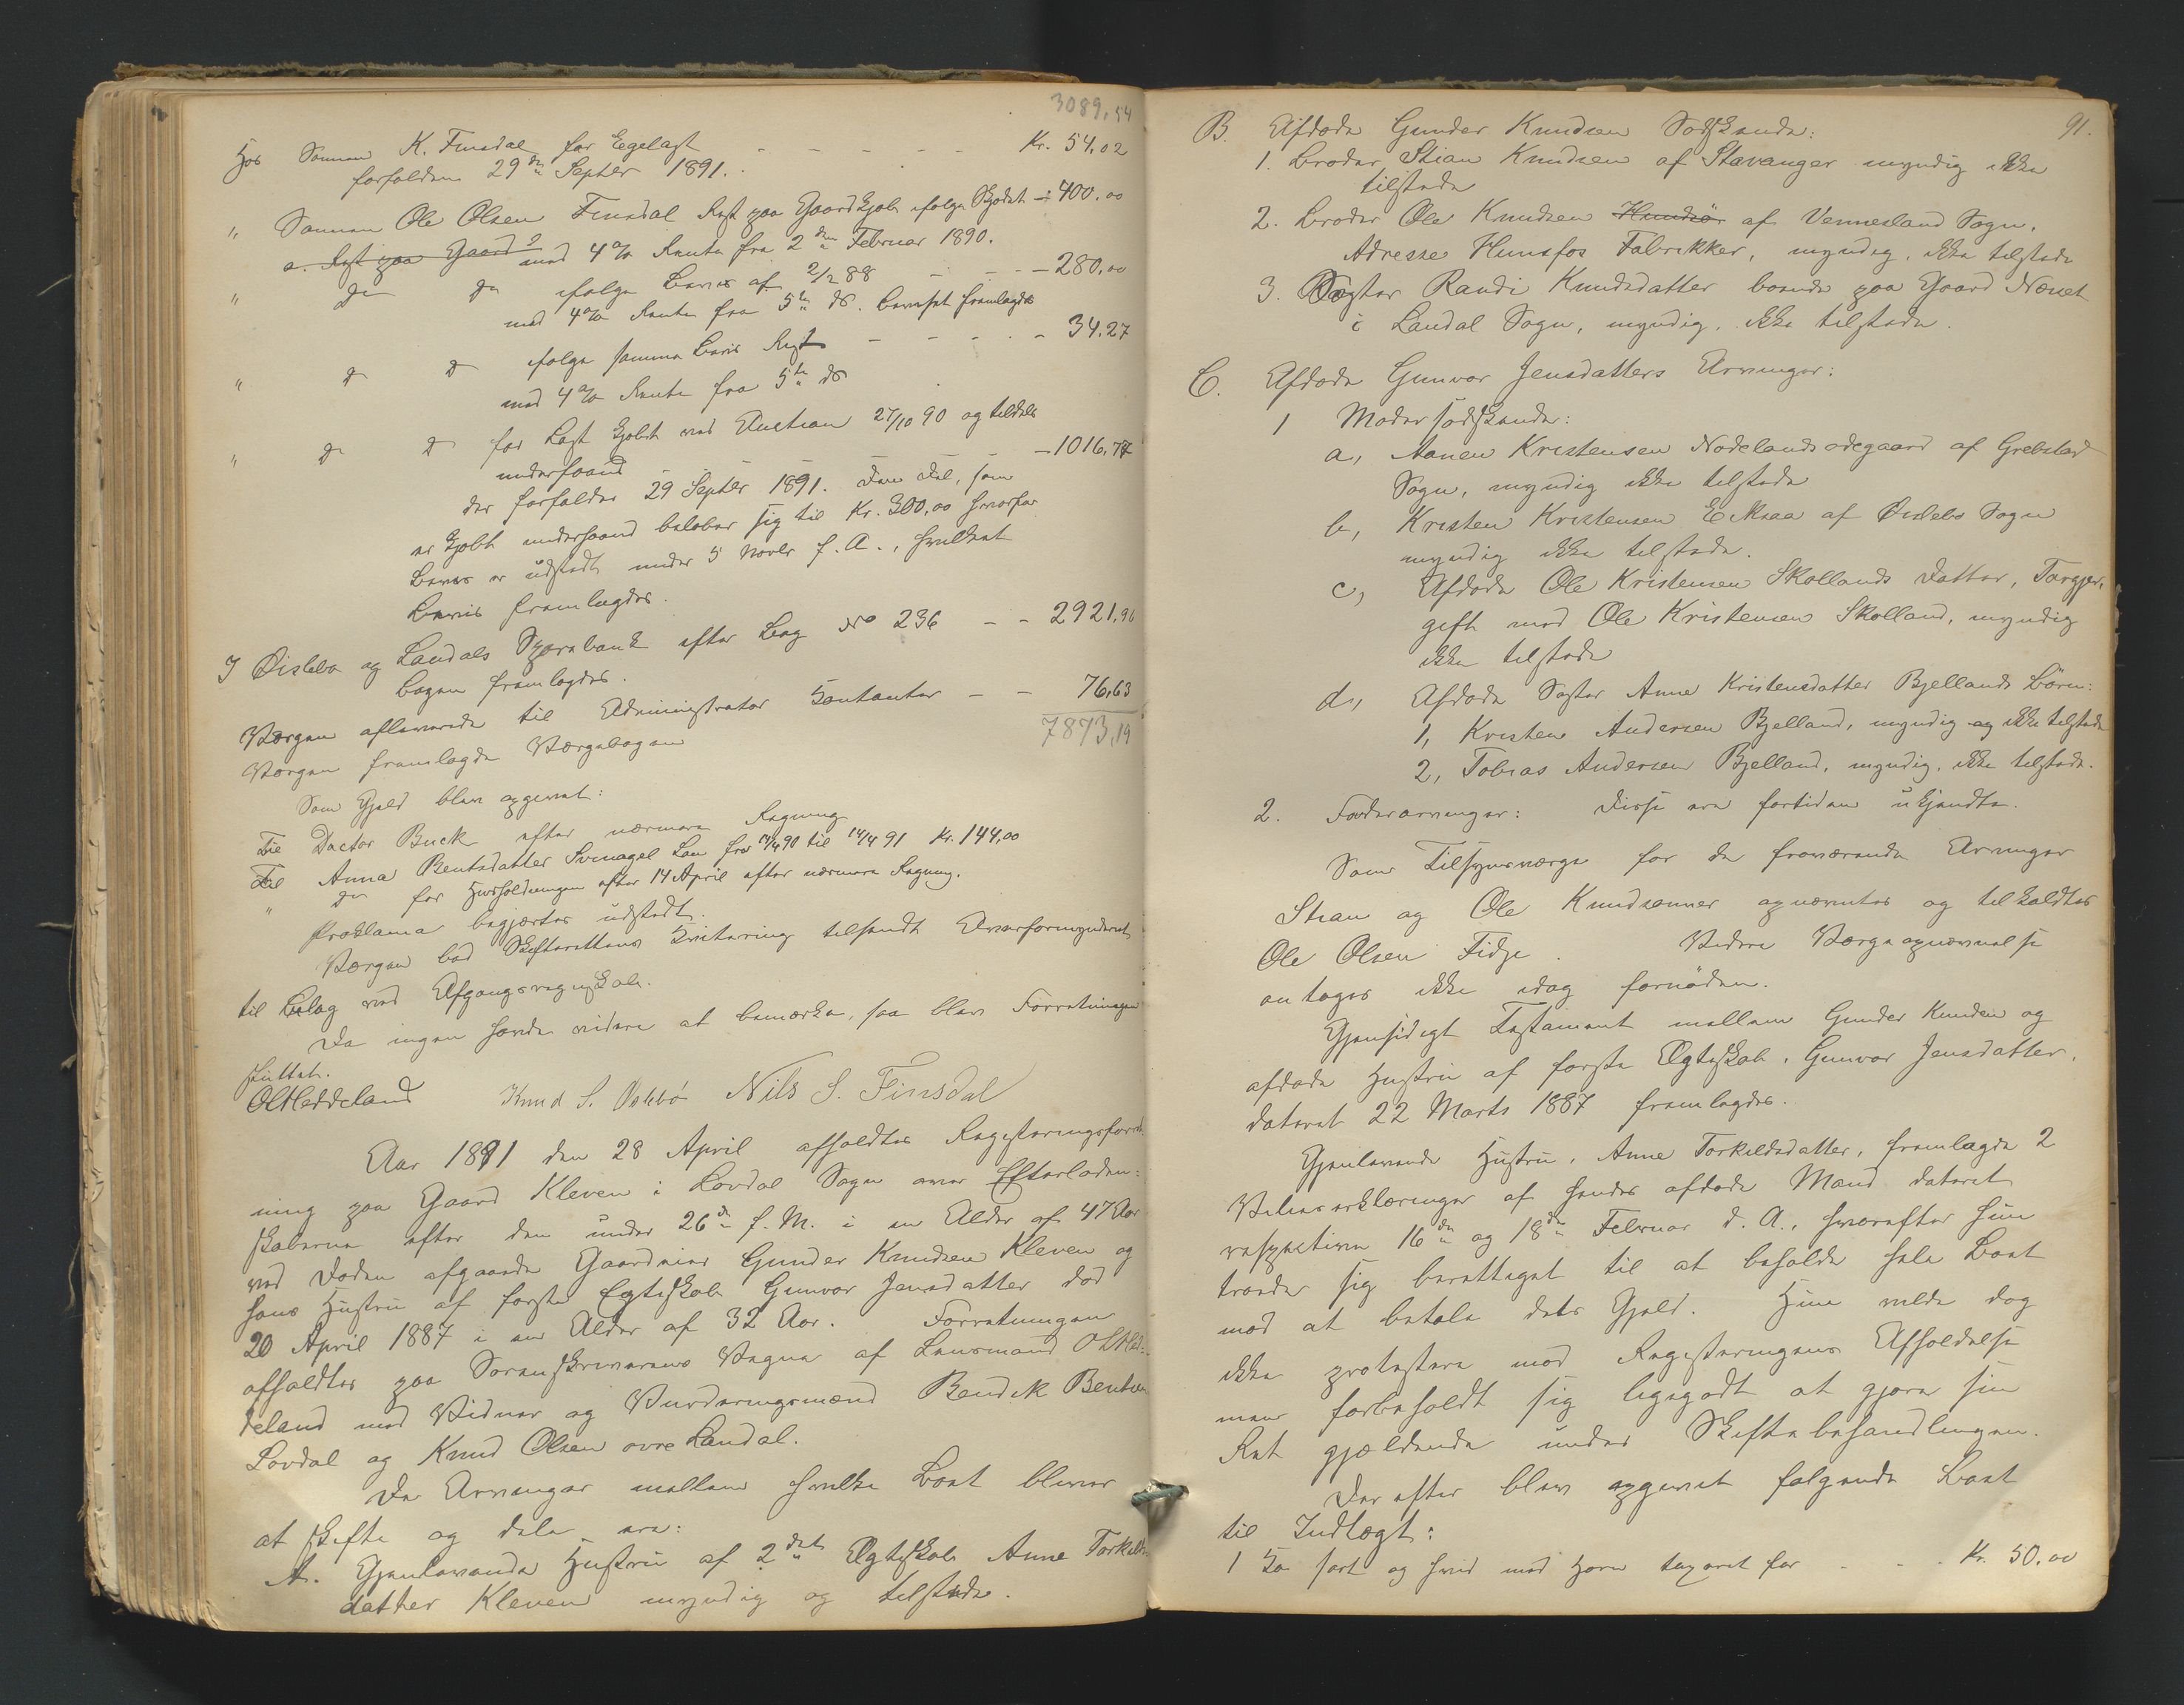 3089,54
Hos Sønnen K. Finsdal for Egelagt - - - - - Kr. 54.02
forfalden 29de Septbr 1891.
" Sønnen Ole Olsen Finsdal Rest paa Gaardkjøb ifølge Skjødet - 400.00
a. Rest paa Gaard med 4% Rente fra 2den Februar 1890.
" Do Do ifølge Bevis af 2/2 88 - - - 280,00
med 4% Rente fra 5te ds. Beviset fremlagdes
" Do Do ifølge samme Bevis Rest - - - - - 34.27
med 4% Rente fra 5te ds
" Do Do for Løst kjøbt ved Auction 27/10 90 og tildels
underhaand - 1016,77
der forfalder 29 Septbr 1891. Den Del, som
er kjøbt underhaand beløber sig til Kr. 300,00 hvorfor
Bevis er udstedt under 5 Novbr f. A., hvilket
Bevis fremlagdes.
I Øislebø og Laudals Sparebank efter Bog No 236 - - 2921,96
Bogen fremlagdes.
Værgen afleverede til Administrator Kontanter - - 76,63
7873,19
Værgen fremlagde Værgebogen
Som Gjæld blev opgivet:
Til Doctor Buck efter nærmere Regning
Til Anna Bentsdatter Svinagel Løn fra 14/4 90 til 14/4 91 Kr. 144,00
" Do for Husholdningen efter 14 April efter nærmere Regning.
Proklama begjærtes udstedt.
Værgen bad Skifterettens Kvitering tilsendt Overformynderiet
til Bilag ved Afgangsregnskab.
Da ingen havde videre at bemærke, saa blev Forretningen
sluttet.
OltHeddeland Knud S. Oslebø Nils S. Finsdal
Aar 1891 den 28 April afholdtes Registreringsforret-
ning paa Gaard Kleven i Løvdal Sogn over Efterladen-
skaberne efter den under 26de f. M. i en Alder af 47 Aar
ved Døden afgaaede Gaardeier Gunder Knudsen Kleven og
hans Hustru af første Egteskab Gunvor Jensdatter død
20 April 1887 i en Alder af 32 Aar. Forretningen
afholdtes paa Sorenskriverens Vegne af Lensmand OltHed-
deland med Vidner og Vurderingsmænd Bendik Bentsen
Løvdal og Knud Olsen øvre Laudal.
De Arvinger mellem hvilke Boet bliver
at skifte og dele ere:
A. Gjenlevende Hustru af 2det Ægteskab Anne Torkilds-
datter Kleven myndig og tilstede.
91.
B. Afdøde Gunder Knudsen Sødskende:
1. Broder Stian Knudsen af Stavanger myndig ikke
tilstede
2. Broder Ole Knudsen Hundsør af Vennesland Sogn.
Adresse Hunsfos Fabrikker, myndig, ikke tilstede
3. Søster Randi Knudsdatter boende paa Gaard Næset
i Laudal Sogn, myndig, ikke tilstede.
C. Afdøde Gunvor Jensdatters Arvinger:
1 Modersødskende:
a, Aanen Kristensen Nodelandsødegaard af Grebstad
Sogn, myndig ikke tilstede
b, Kristen Kristensen Eiksaa af Øislebø Sogn
myndig ikke tilstede.
c, Afdøde Ole Kristensen Skollands Datter, Torgjer,
gift med Ole Kristensen Skolland, myndig
ikke tilstede
d, Afdøde Søster Anne Kristensdatter Bjellands Børn:
1, Kristen Andersen Bjelland, myndig og ikke tilstede
2, Tobias Andersen Bjelland, myndig, ikke tilstede.
2. Faderarvinger: Disse ere fortiden ukjendte.
Som Tilsynsværge for de fraværende Arvinger
Stian og Ole Knudsønner opnævntes og tilkaldtes
Ole Olsen Fidje. Videre Værgeopnævnelse
antages ikke idag fornøden.
Gjensidigt Testament mellem Gunder Knudsen og
afdøde Hustru af første Ægteskab, Gunvor Jensdatter,
dateret 22 Marts 1887 fremlagdes.
Gjenlevende Hustru, Anne Torkildsdatter, fremlagde 2
Villieserklæringer af hendes afdøde Mand dateret
respektive 16de og 18de Februar d. A., hvorefter hun
troede sig berettiget til at beholde hele Boet
mod at betale dets Gjæld. Hun vilde dog
ikke protestere mod Registreringens Afholdelse
men forbeholdt sig ligegodt at gjøre sin
Ret gjældende under Skiftebehandlingen.
Derefter blev opgivet følgende Boet
til Indtægt:
1 Ko sort og hvid med Horn taxeret for - - - Kr. 50.00